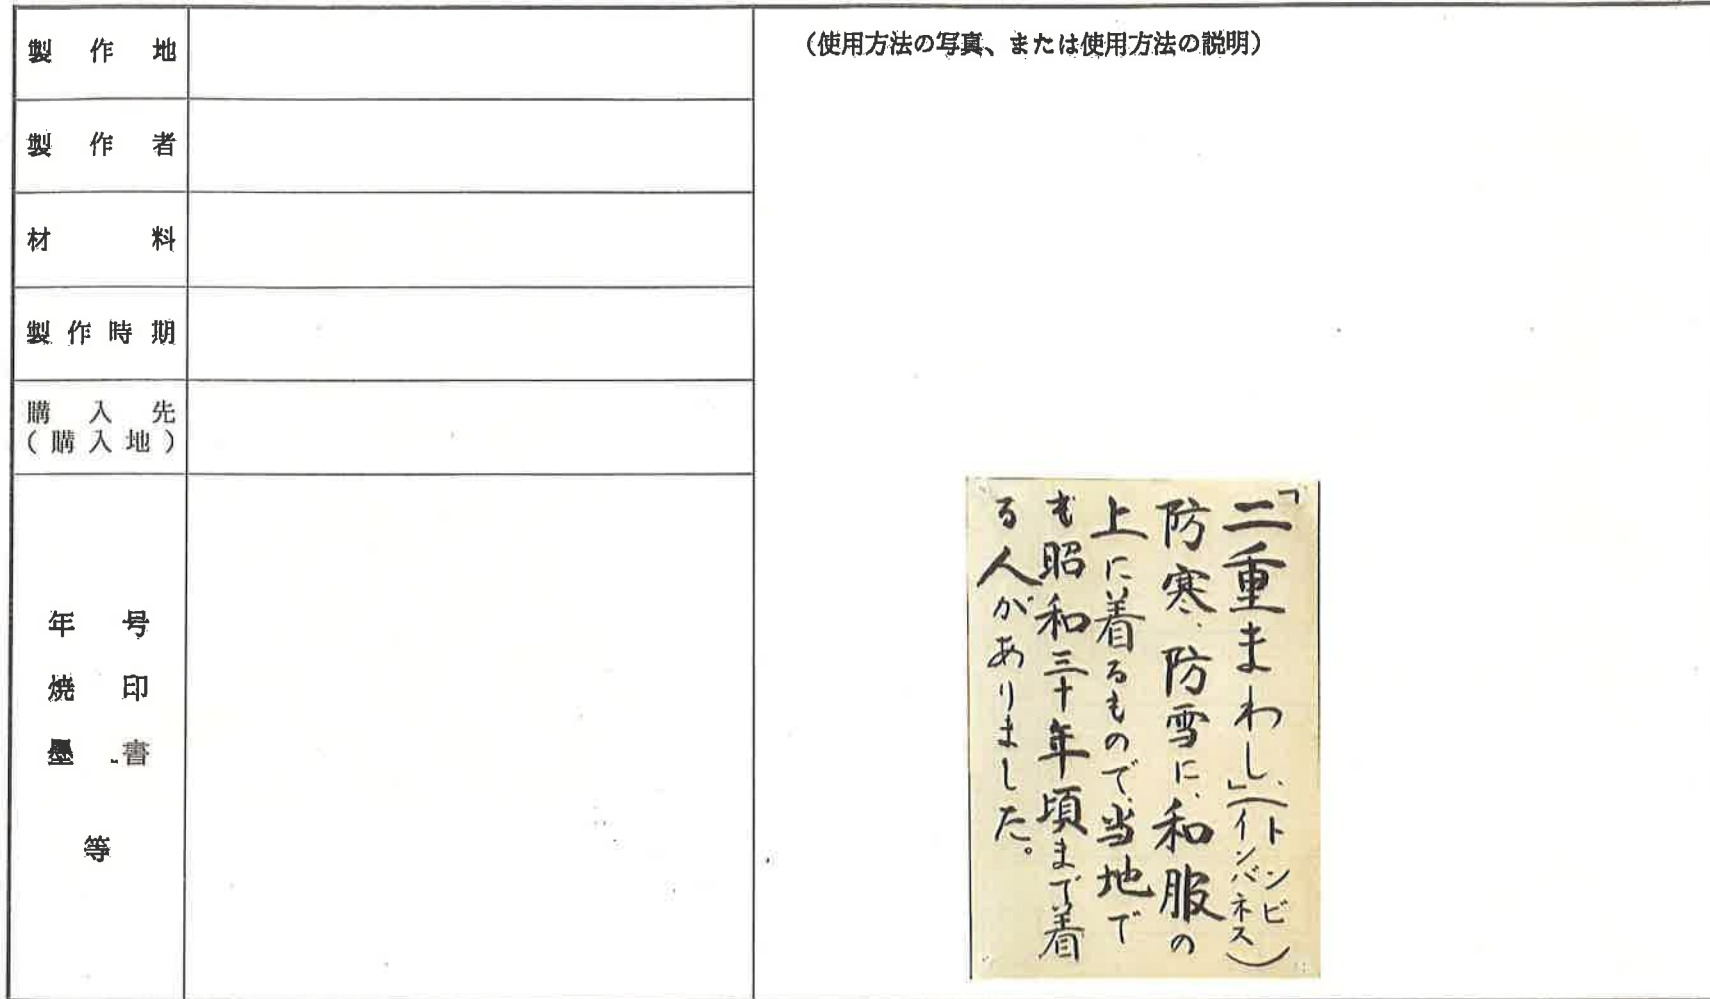 製作地
製作者
材料
製作時期
購入先
(購入地)
年号
焼印
墨書
等
(使用方法の写真、または使用方法の説明)
「二重まわし」(トンビ インバネス)
防寒、防雪に、和服の
上に着るもので、当地で
も昭和三十年頃まで着
る人がありました。